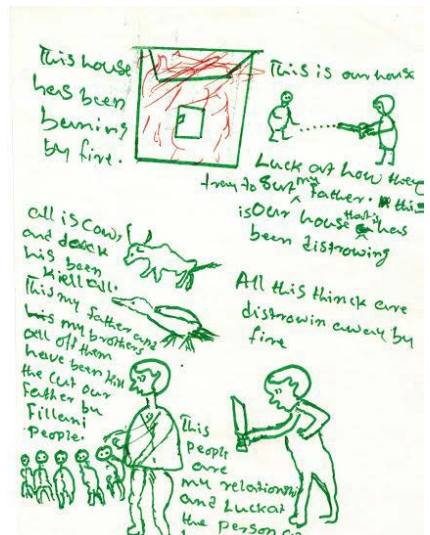 This house
has been
bening
by fire.
This is our house
Luck at how they
tray to surt my father.
is Our house that it has
been distrowing
all is cow,
and dock
his been
kiell all.
This my father and
his my brothers
all off them
have been kill
the cut our
father by
Fillani
People.
All this thinck are
distrowin away by
fire
This
people
are
my relationship
and Luckat
the person